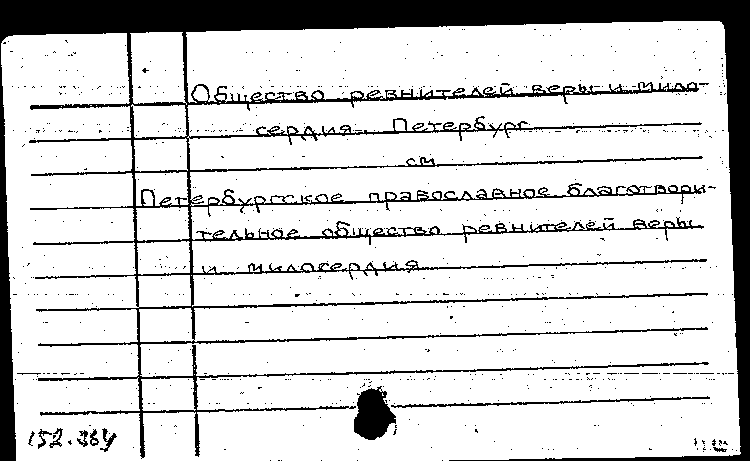 Общество ревнителей веры и мило-
сердия. Петербург
см
Петербургское православное благотвори-
тельное общество ревнителей веры
и милосердия
152.364